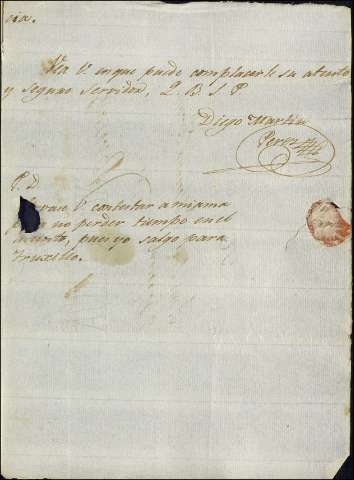 cia.
Vea V. en que puede complacerle su atento
y seguro servidor, Q. B. S. P.
Diego Martin
Perez
P. D.
V. contestar a mi ama
para no perder tiempo en el
pues yo salgo para
Truxillo.